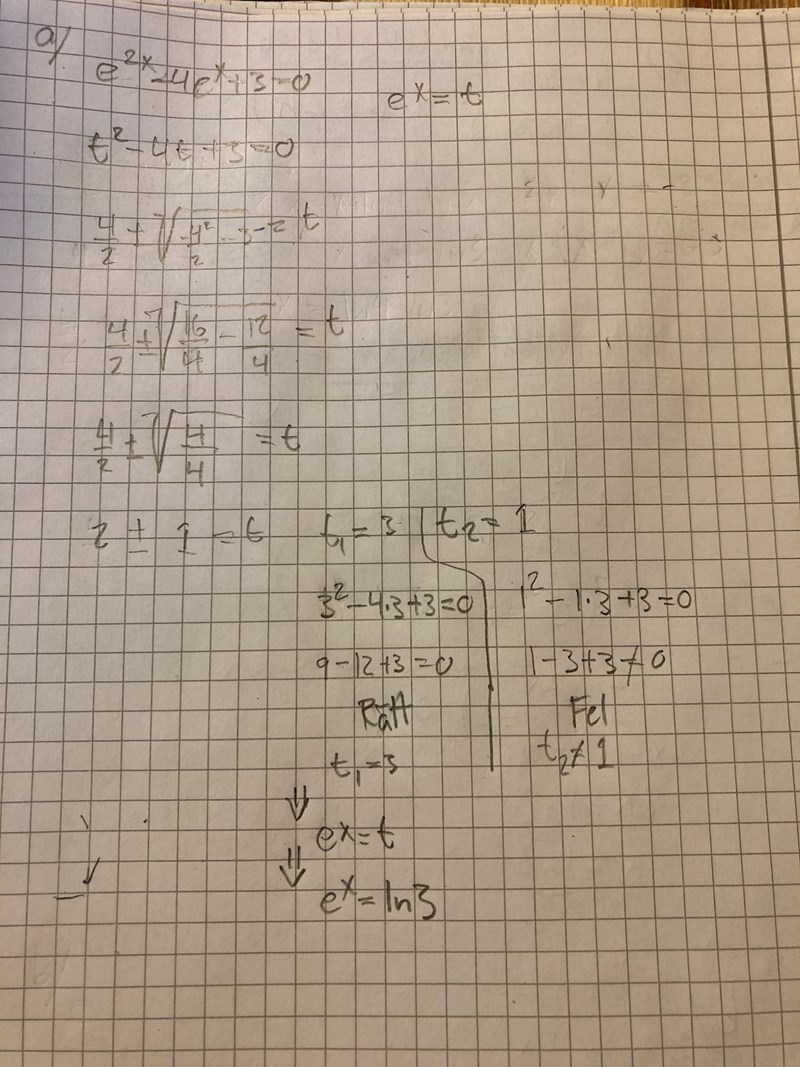 a)
e^{2x} - 4e^x + 3 = 0
e^x = t
t² - 4t + 3 = 0
4/2 ± √(4²/2 - 3 = t
4/2 ± √(16/4 - 12/4) = t
4/2 ± √(4/4) = t
2 ± 1 = t
t₁ = 3 | t₂ = 1
3² - 4·3 + 3 = 0
1² - 1·3 + 3 = 0
9 - 12 + 3 = 0
1 - 3 + 3 ≠ 0
Rätt
Fel
t₁ = 3
t₂ ≠ 1
⇓
e^x = t
⇓
e^x = ln3